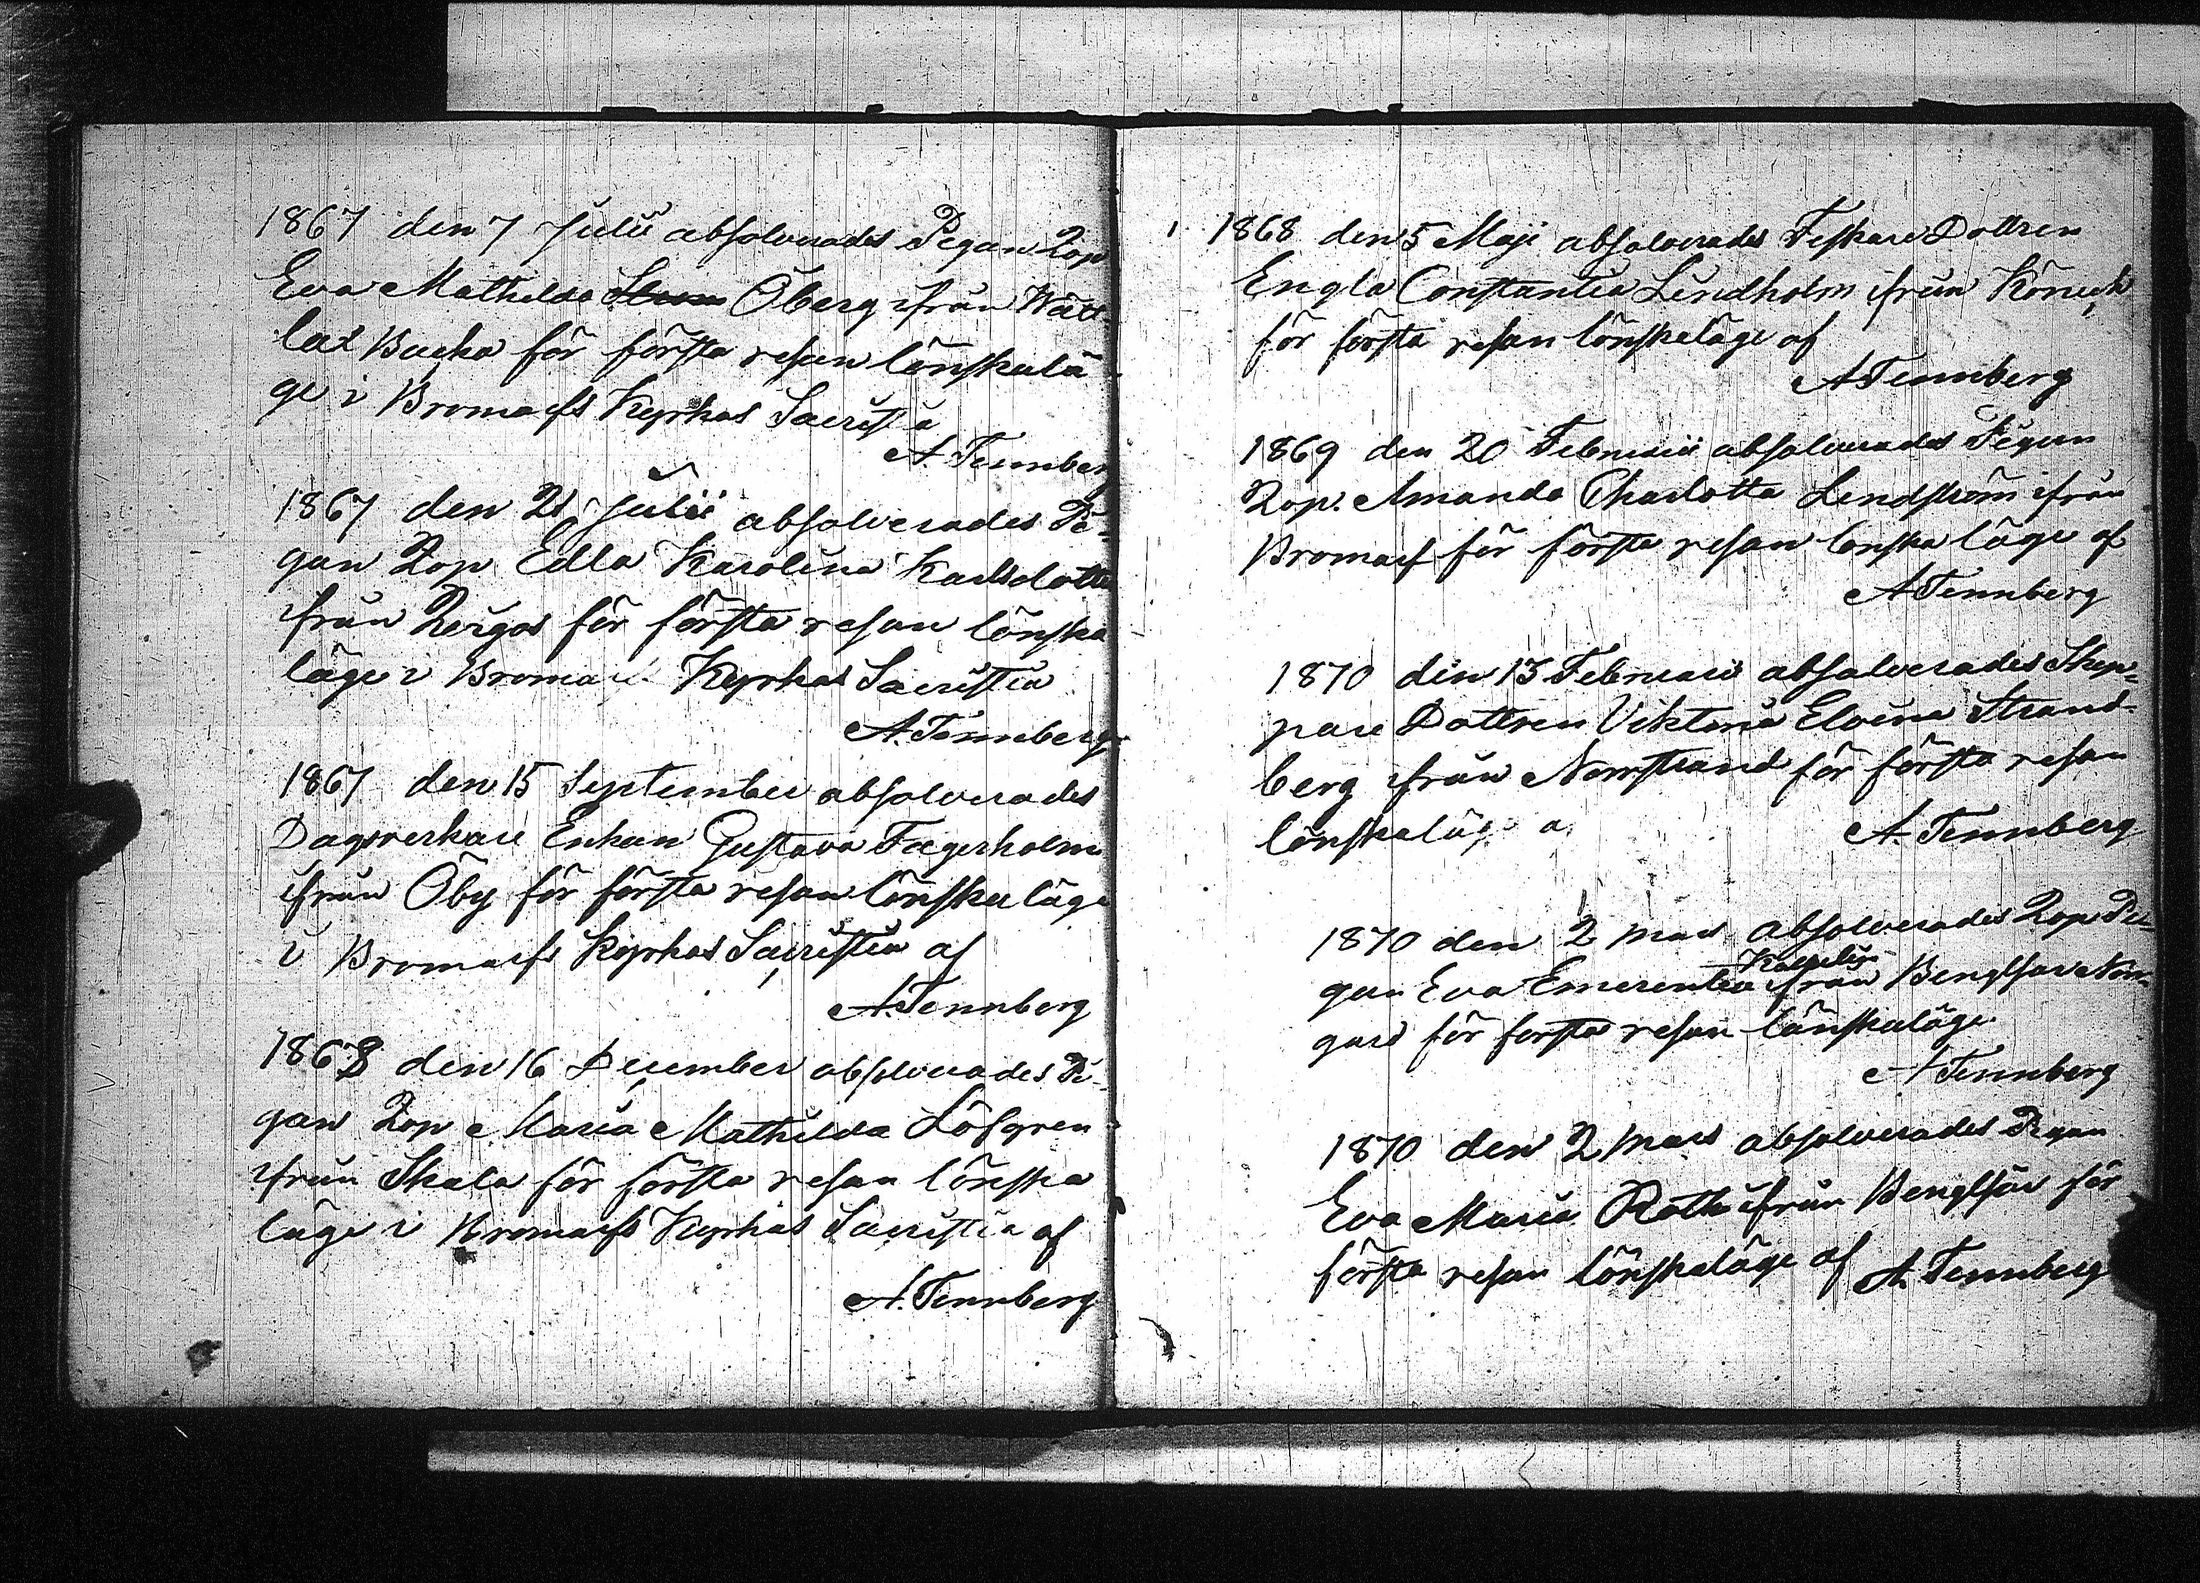 1867 den 7 Julii absolverades Pigan Lösp
Eva Mathilda Öberg ifrån Wätt-
lax Backa för första resan lönskalä
ge i Bromarfs Kyrkas Sacristia
A. Tennberg
1867 den 21 Julii absolverades Pi-
gan Lösp Edla Karolina Karlsdotter
ifrån Rergos för första resan lönska
läge i Bromarfs Kyrkas Sacristia
A. Tennberg
1867 den 15 September absolverades
Dagsverkare Enkan Gustava Fagerholm
ifrån Öby för första resan lönska läge
i Bromarfs Kyrkas Sacristia af
A. Tennberg
1868 den 16 December absolverades Pi-
gan Lösp Maria Mathilda Löfgren
ifrån Skala för första resan lönska
läge i Bromarfs Kyrkas Sacristia af
A. Tennberg
1868 den 5 Maji absolverades Fiskare Dottren
Engla Constantia Lindholm ifrån
för första resan lönskaläge af
A Tennberg
1869 den 20 Februarii absolverades Pigan
Lösp. Amanda Charlotta Lindström ifrån
Bromarf för första resan lönska läge af
A Tennberg
1870 den 13 Februarii absolverades Skep=
pare Dottren Viktoria Elvira Strand-
berg ifrån Norrstrand för första resan
lönskaläge a
A. Tennberg
1870 den 2 mars absolverades Lösp Pi-
gan Eva Emerentia ifrån Bengtsår Norr-
gård för första resan lönskaläge
A Tennberg
1870 den 2 mars absolverades Pigan
Eva Maria Roth ifrån Bengtsår för
första resan lönskaläge af A. Tennberg